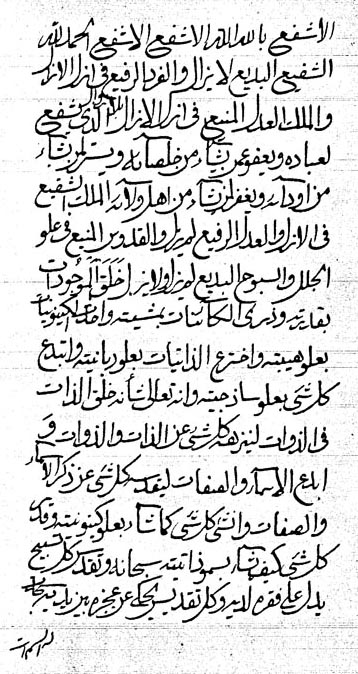 الاشفعي بالله الله الاشفع الاشفع الحمد لله
الشفيع البديع لا يزال والفرد الرفيع في ازل الازال
والملك العدل المنيع في ازل الازال الذي يشفع
لعباده ويعفو عمن يشاء من خلقانه ويستر لمن يشاء
من اودآئه ويغفر لمن يشاء من اهل ولايه الملك الشفيع
في الازل والعدل الرفيع لم يزل والقدوس المنيع في علو
الجلل والسبوح البديع لم يزل ولا يزال خلق الموجودات
بقدرته وذرئ الكائنات بمشيته واحدث الكينونيات
بعلو هيبته واخترع الذاتيات بعلو ربانيته وابتدع
كل شئ بعلو ساذجيته وانه تعالى شأنه خلق الذات
في الذوات لينزهه كل شئ عن الذات والذوات و
ابدع الاسماء والصفات ليقدسه كل شئ عن ذكر الاسماء
والصفات وانشئ كل شئ كما شاء بعلو كينونيته وذوت
كل شئ كيف شاء بسمو ذاتيته سبحانه وتقدس كل تسبيح
يدل على فقره لديه وكل تقديس يحكي عن عجزه بين يديه سبحانه
له السموات